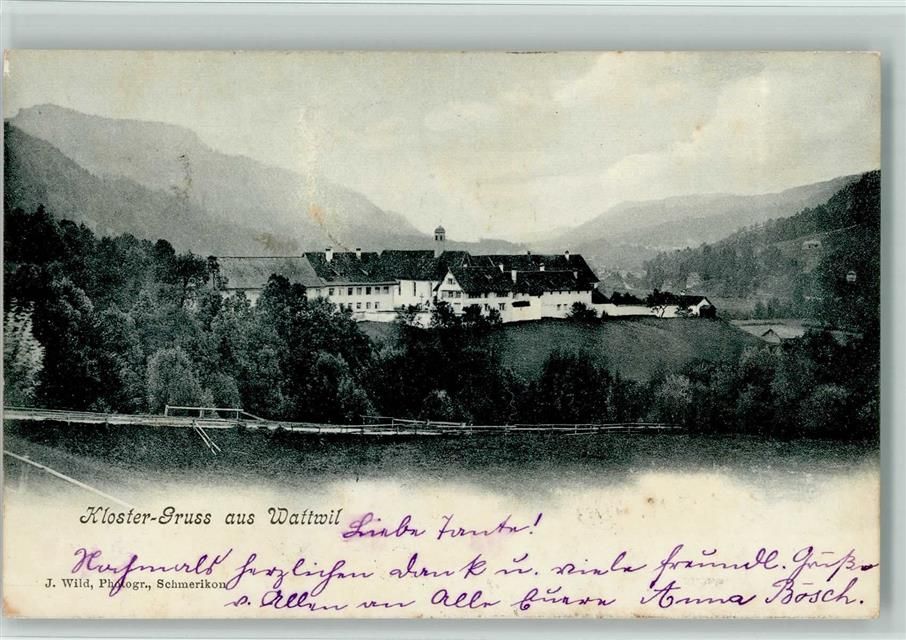 Kloster-Gruss aus Wattwil
Liebe Tante!
Nochmals herzlichen Dank u. viele freundl. Grüße
J. Wild, Photogr., Schmerikon
v. Allen an Alle Euere Anna Bösch.